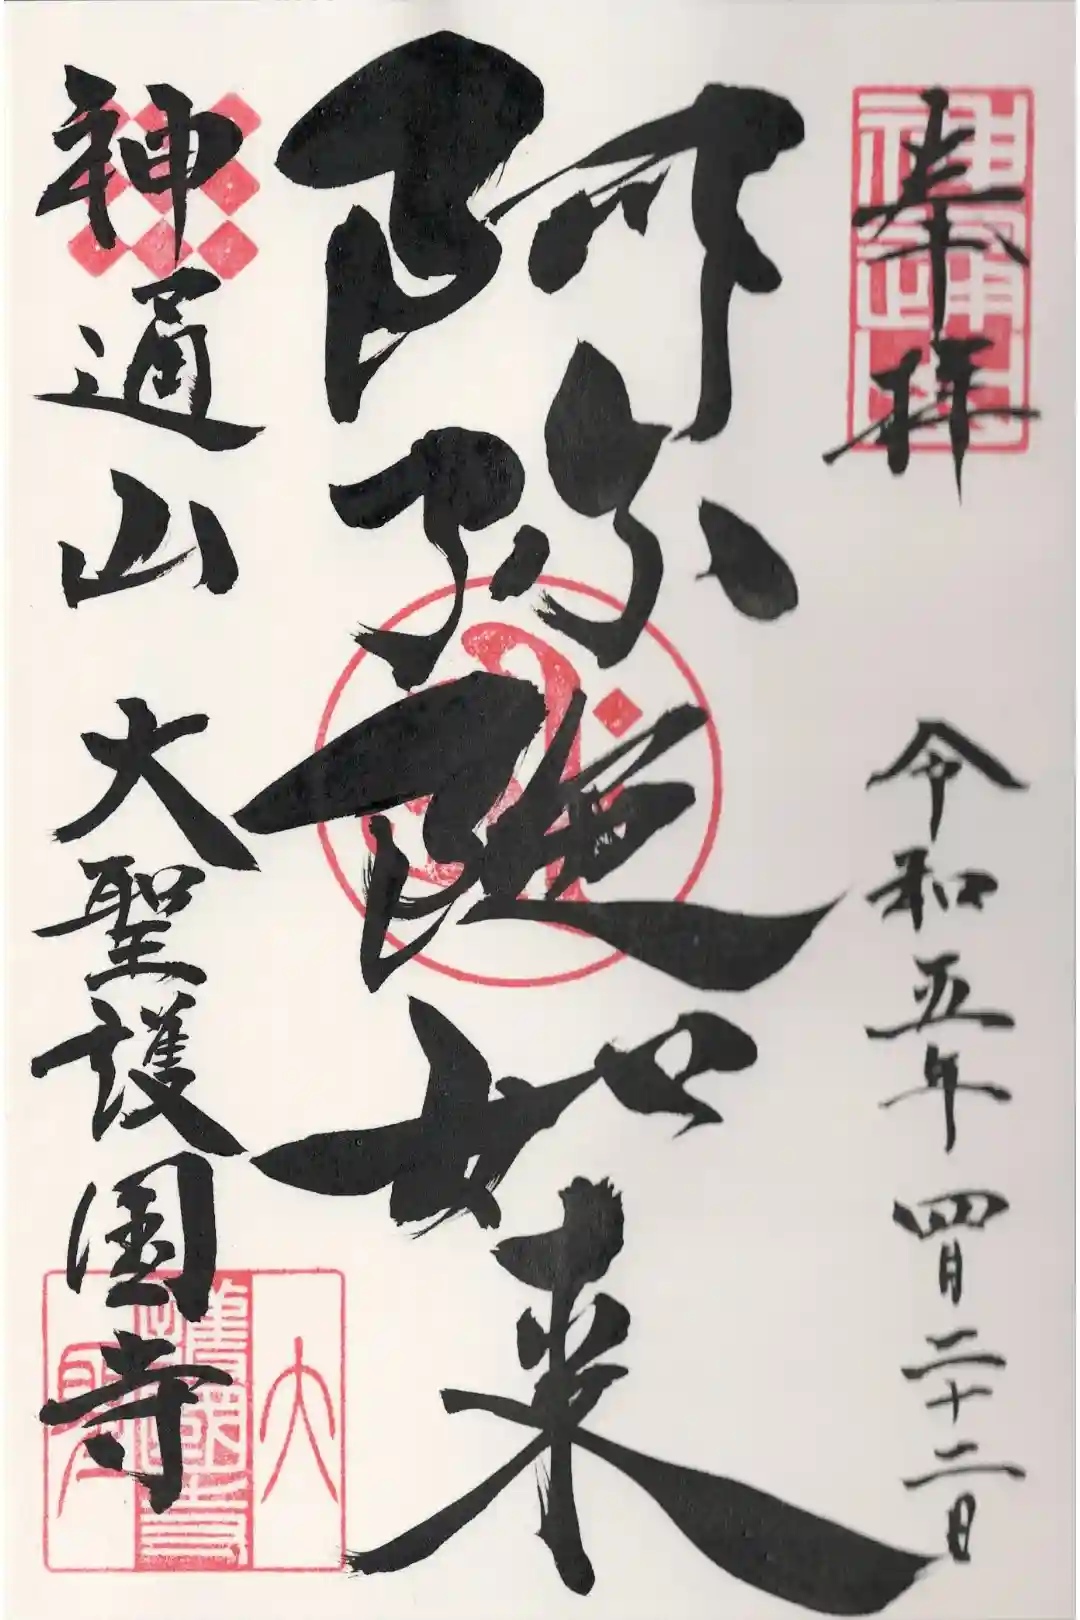 奉拝
令和五年 四月二十二日
阿弥陀如来
神通山 大聖護国寺
大聖護國寺